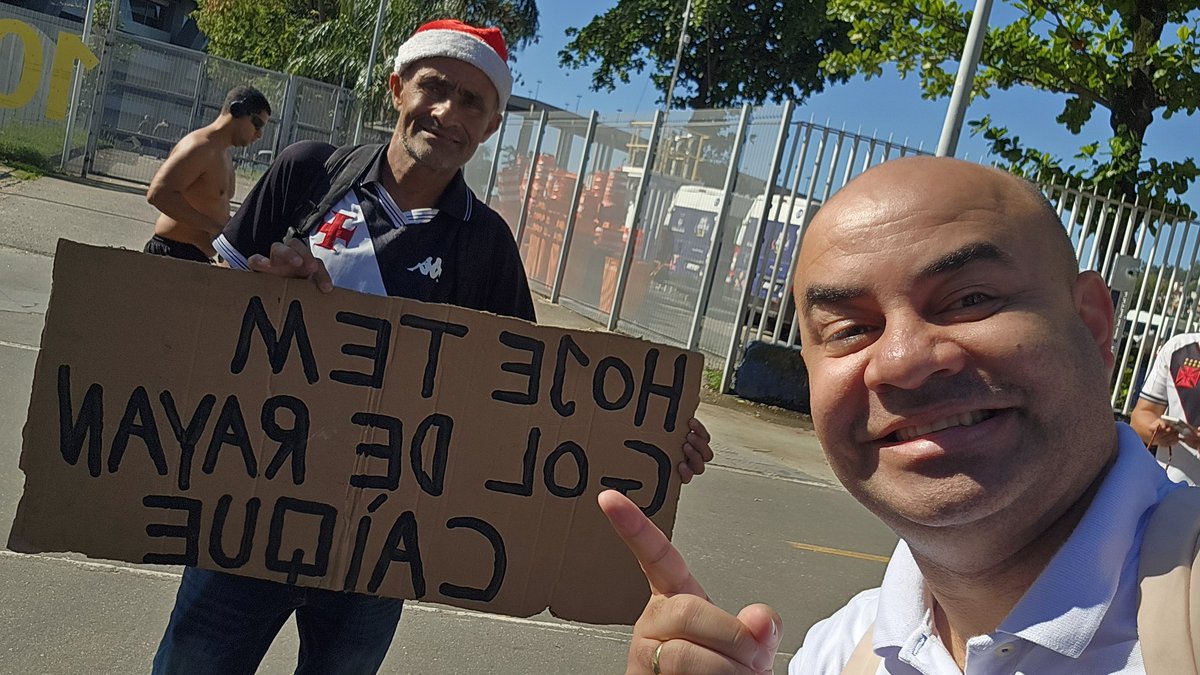 HOJE TEM
GOL DE RAYAN E
CAÍQUE
10